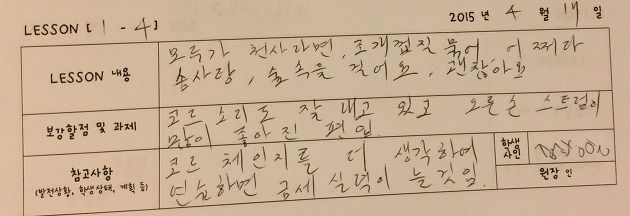 LESSON [ 1 - 4 ]
2015 년 4 월 17 일
LESSON 내용
모두가 천사라면, 조개껍질 묶어, 어쩌다
송사탕, 숲속을 걸어요, 괜찮아요
보강할점 및 과제
코드 소리도 잘 내고 있고 오른손 스트럼이
많이 좋아진 편임.
참고사항
(발전상황, 학생상태, 계획 등)
코드 체인지를 더 생각하며
연습하면 금세 실력이 늘것임.
학생
사인
원장 인